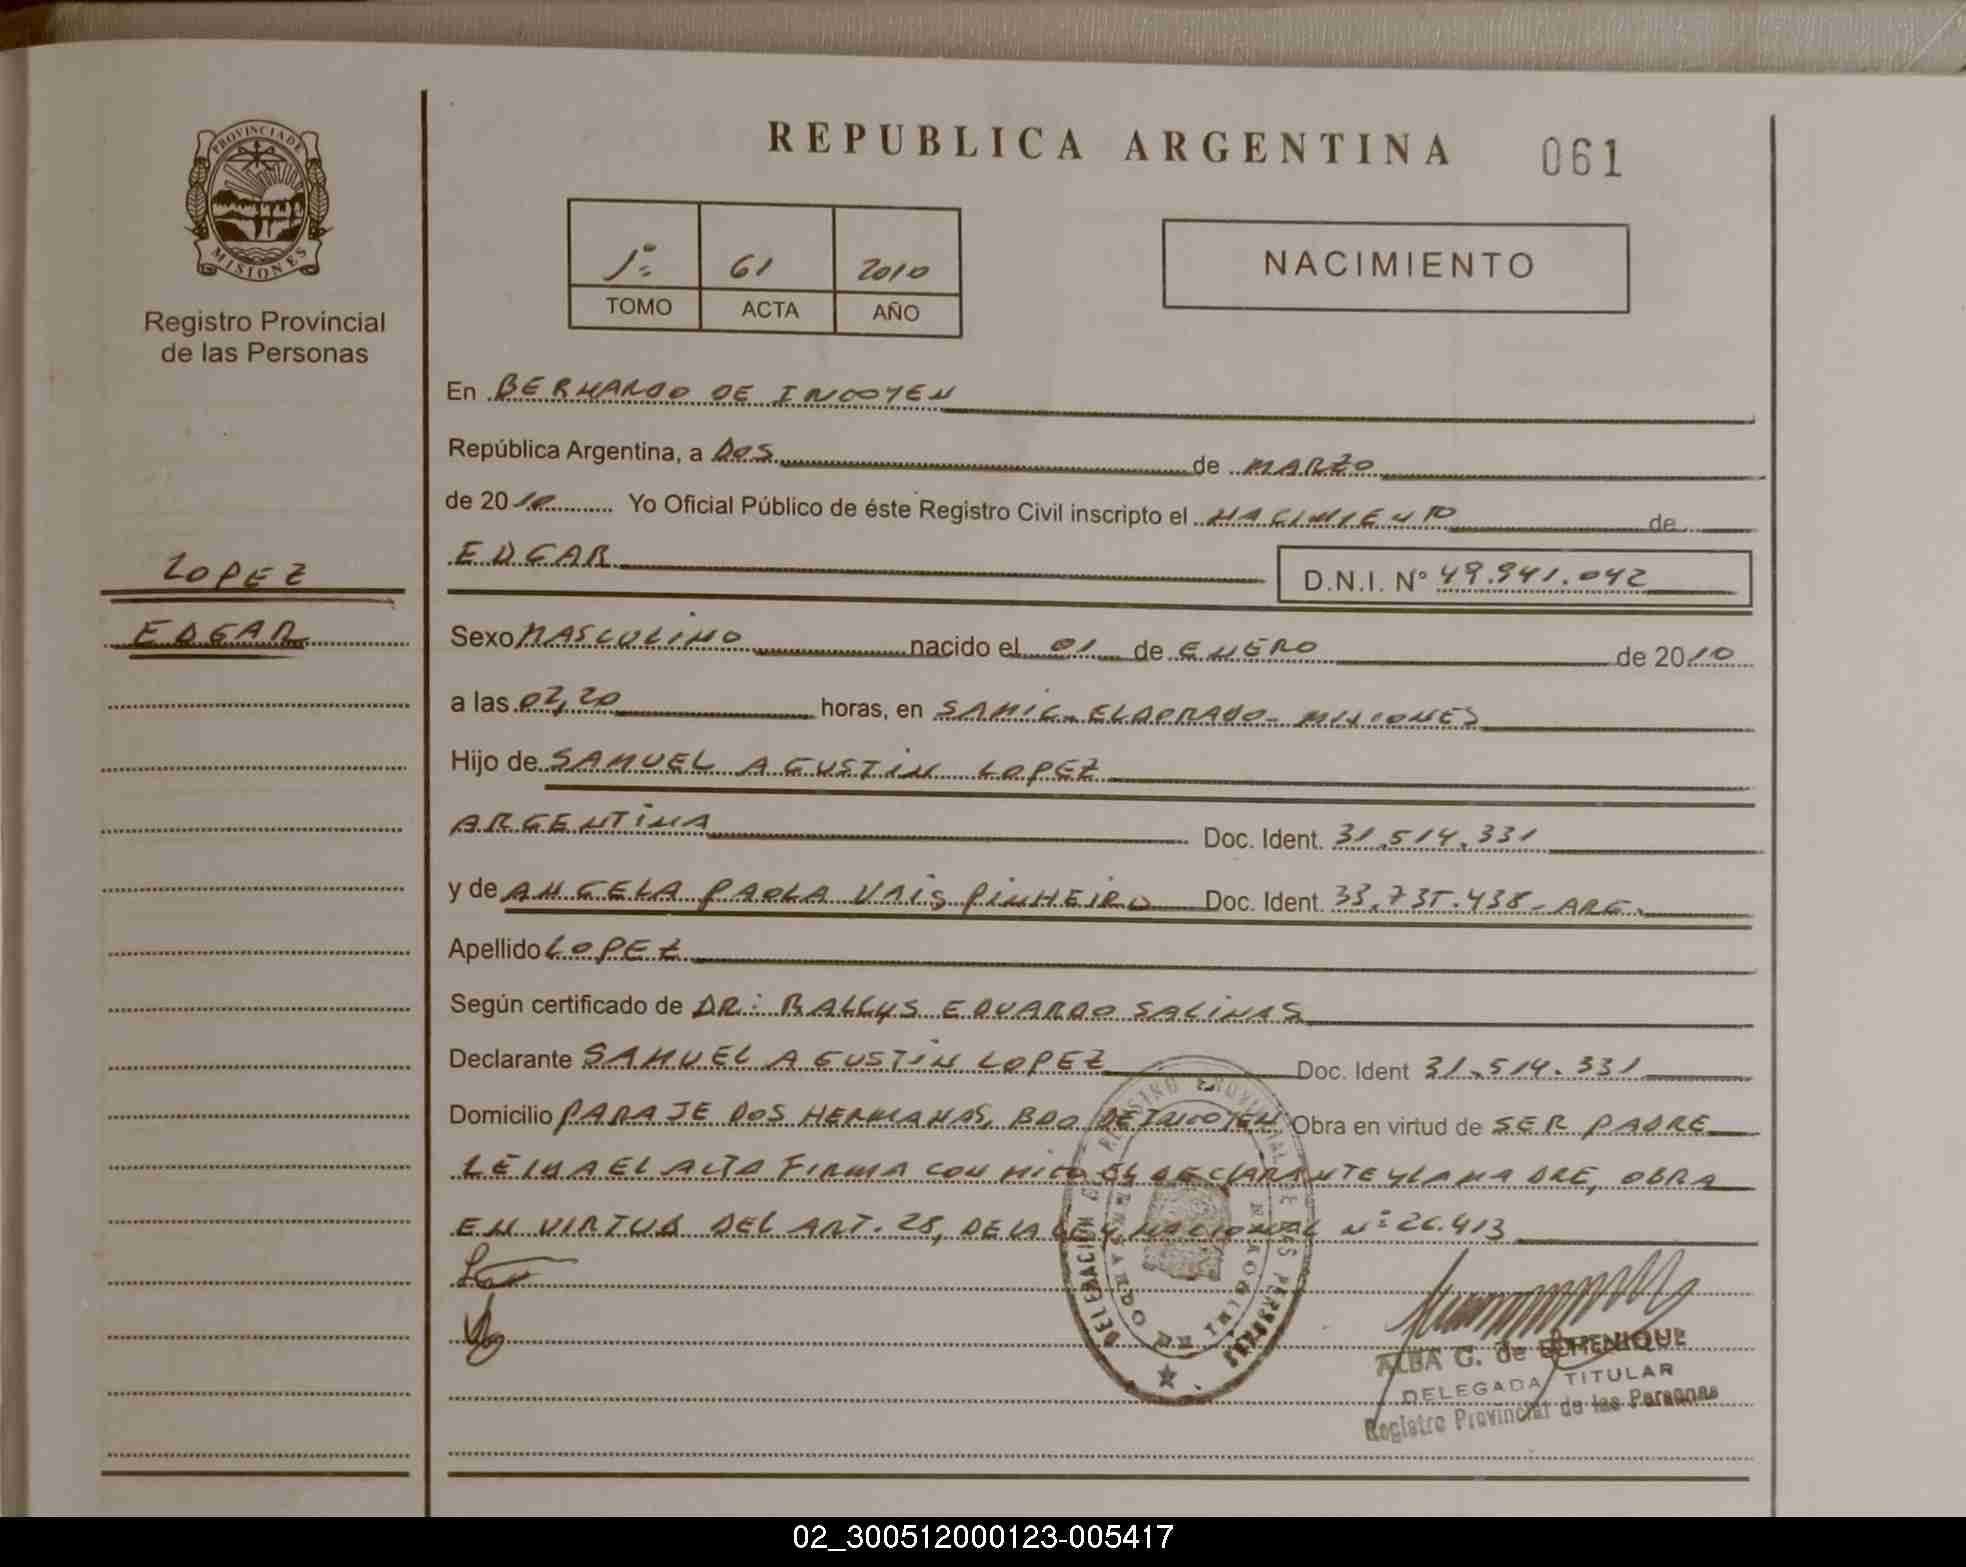 REPUBLICA ARGENTINA 061
PROVINCIA DE
MISIONES
Registro Provincial
de las Personas
1º 61 2010
TOMO ACTA AÑO
NACIMIENTO
En BERNARDO DE IRIGOYEN
República Argentina, a DOS de MARZO
de 2010 Yo Oficial Público de éste Registro Civil inscripto el NACIMIENTO de
EDGAR D.N.I. Nº 49.941.042
LOPEZ
EDGAR
Sexo MASCULINO nacido el 01 de ENERO de 2010
a las 02,20 horas, en SAMIC - ELDORADO - MISIONES
Hijo de SAMUEL AGUSTIN LOPEZ
ARGENTINA Doc. Ident. 31.514.331
y de ANGELA PAOLA VAIS PINHEIRO Doc. Ident. 33.735.438 - ARG.
Apellido LOPEZ
Según certificado de DR: RALLYS EDUARDO SALINAS
Declarante SAMUEL AGUSTIN LOPEZ Doc. Ident 31.514.331
Domicilio PARAJE DOS HERMANAS, BDO DE IRIGOYEN Obra en virtud de SER PADRE
LEIDA EL ACTA FIRMA CONMIGO EL DECLARANTE Y LA MADRE, OBRA
EN VIRTUD DEL ART. 28, DE LA LEY NACIONAL Nº 26.413
ALBA G. de ECHENIQUE
DELEGADA TITULAR
Registro Provincial de las Personas
02_300512000123-005417